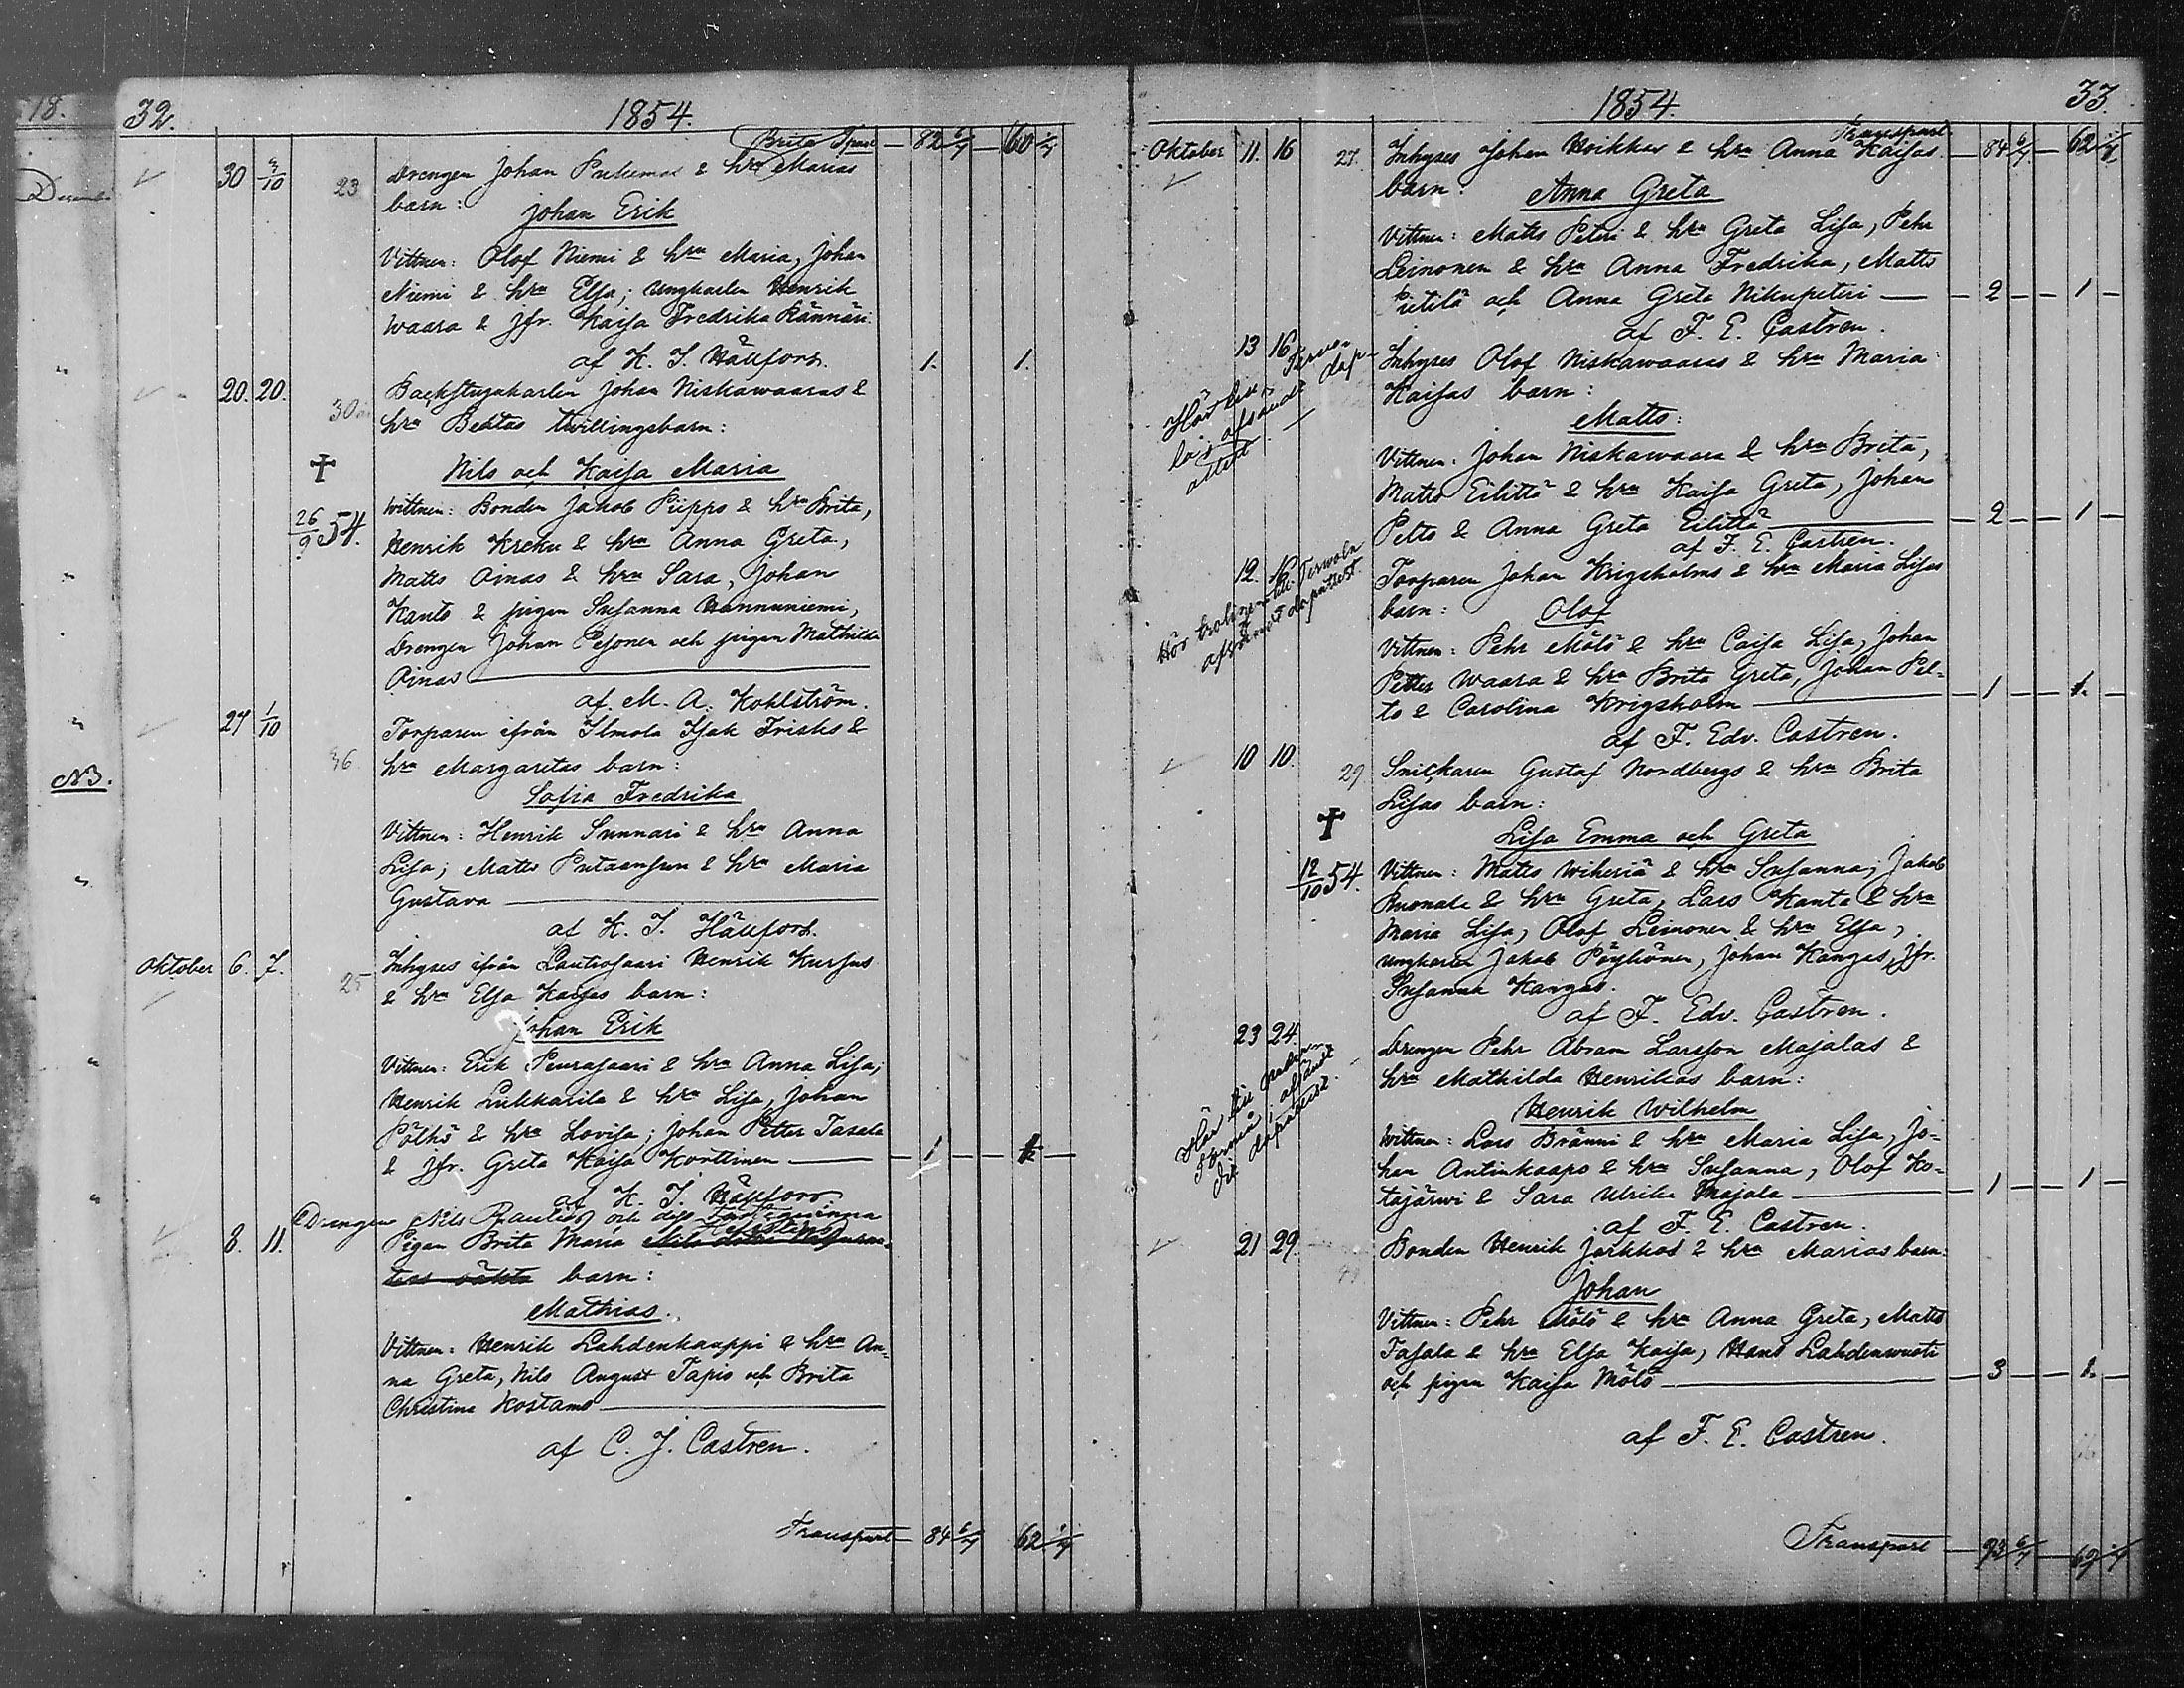 18.
Decemb
N3.
32. 1854.
Brita Tpart — 82 6/7 — 60 1/7
30 3/10 23 Drengen Johan Pukemas & hru Marias
barn:
Johan Erik
Vittnen: Olof Niemi & hru Maria, Johan
Niemi & hru Elsa; ungkarlen Henrik
Waara & jfr. Kaisa Fredrika Rännäri.
af K. J. Hällfors. 1. 1.
20. 20. 30 Backstugukarlen Johan Niskawaaras &
hru Beatas twillingsbarn:
Nils och Kaisa Maria
26/9 54. Wittnen: Bonden Jakob Piippo & hru Brita,
Henrik Kreku & hru Anna Greta,
Matts Ainas & hru Sara, Johan
Kanto & pigen Susanna Hannuniemi,
Drengen Johan Pesonen och pigen Mathilda
Ainas
af M. A. Kohlström.
27 1/10 36 Torparen ifrån Ilmola Isak Frisks &
hru Margaretas barn:
Sofia Fredrika
Vittnen: Henrik Sunnari & hru Anna
Lisa; Matts Putaansuu & hru Maria
Gustava
af K. J. Hällfors.
Oktober 6. 7. 25 Inhyses ifrån Lautiosaari Henrik Kursus
& hru Elsa Kaisas barn:
Johan Erik
Vittnen: Erik Peurasaari & hru Anna Lisa;
Henrik Lukkarila & hru Lisa, Johan
Pölhö & hru Lovisa; Johan Petter Tasala
& jfr. Greta Kaisa Kortinen — 1 — 1 —
af K. J. Hällfors.
Drengen Nils Rautios och dess
8. 11. Pigan Brita Maria
barn:
Mathias.
Vittnen: Henrik Lahdenkauppi & hru An-
na Greta, Nils August Tapio och Brita
Christina Kostamo
af C. J. Castren.
Transport — 84 6/7 62 1/7
1854. 33
Transport — 84 6/7 — 62 1/7
Oktober 11. 16 27. Inhyses Johan Hoikkas & hru Anna Kaisas
barn:
Anna Greta
Vittnen: Matts Peteri & hru Greta Lisa, Pehr
Leinonen & hru Anna Fredrika, Matts
Pietilä och Anna Greta Nikupeteri — 2 — 1 —
af F. E. Castren.
13 16 Inhyses Olof Niskawaaras & hru Maria
Kaisas barn:
Matts:
Vittnen: Johan Niskawaara & hru Brita,
Matts Eilittä & hru Kaisa Greta, Johan
Pelto & Anna Greta Eilittä — 2 — 1 —
af F. E. Castren.
12. 16 Torparen Johan Krigsholms & hru Maria Lisas
barn: Olof
Vittnen: Pehr Mölö & hru Caisa Lisa, Johan
Petter Waara & hru Brita Greta, Johan Pel-
to & Carolina Krigsholm — 1 — 1. —
af F. Edv. Castren.
10 10. 29 Snickaren Gustaf Nordbergs & hru Brita
Lisas barn:
Lisa Emma och Greta
12/10 54. Vittnen: Matts Wikeriä & hru Susanna, Jakob
Ruonala & hru Greta, Lars Kanta & hru
Maria Lisa, Olof Leinonen & hru Elsa,
ungkarlen Jakob Pöyhönen, Johan Kangas, jfr.
Susanna Kangas.
af F. Edv. Castren.
23 24. Drengen Pehr Abram Larsson Majalas &
hru Mathilda Henrikas barn:
Henrik Wilhelm
Wittnen: Lars Bränni & hru Maria Lisa, Jo-
han Antinkaapo & hru Susanna, Olof Ko-
tajärwi & Sara Ulrika Majala — 1 — 1 —
af F. E. Castren.
21 29. Bonden Henrik Jarkkos & hru Marias barn:
Johan
Vittnen: Pehr Mölö & hru Anna Greta, Matts
Tasala & hru Elsa Kaisa, Hans Lahdenwuoti
och pigen Kaisa Mölö — 3 — 1. —
af F. E. Castren.
Transport — 93 6/7 — 69 1/7